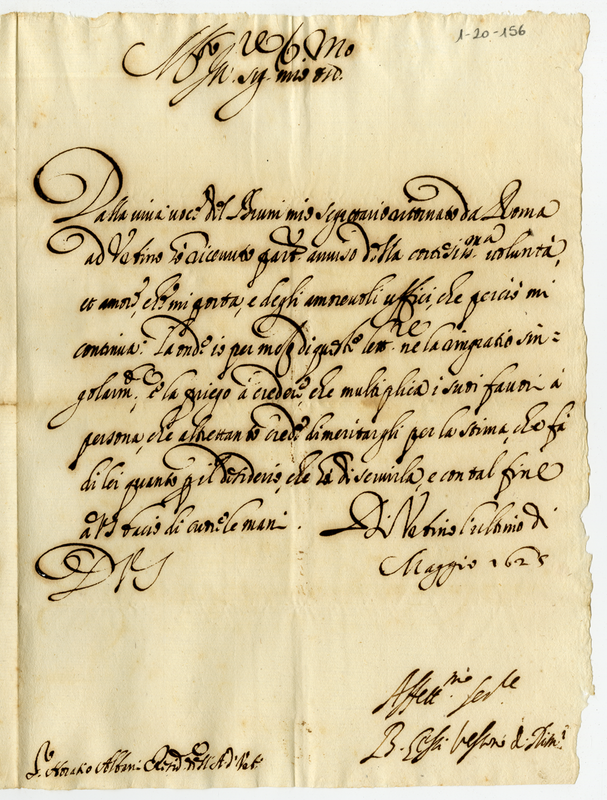 1-20-156
sig. mio
Dalla viva voce del Bruni mio segretario ritornato da Roma
ad Urbino hò ricevuto part.e avviso della cortesiss.ma volontà,
et amore, che mi porta, e degli amorevoli uffici, che perciò mi
continua. La onde io per mezo di questa lett.re ne la ringratio sin=
golarm.te, e la priego à credere, che multiplica i suoi favori à
persona, che altrettanto crede di meritargli per la stima, che fà
di lei quanto p il desiderio, che hà di servirla, e con tal fine
à V.S. bacio di cuore le mani. Di Urbino l'ultimo di
DVS Maggio 1625
Affett.mo
B. Vescovo di Rim.i
S.r Horatio Albani